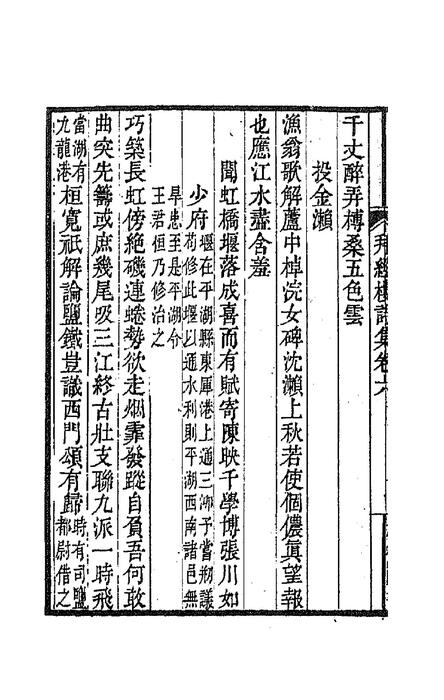 拜經樓詩集卷六
千丈醉弄榑桑五色雲
投金瀨
漁翁歌解蘆中棹浣女碑沈瀨上秋若使個儂眞望報
也應江水盡含羞
聞虹橋堰落成喜而有賦寄陳映千學博張川如
少府
堰在平湖縣東厙港上通三泖予嘗剏議
苟修此堰以通水利則平湖西南諸邑無
旱患至是平湖令
王君恒乃修治之
巧築長虹傍絕磯連蜷勢欲走烟霏發蹤自負吾何敢
曲突先籌或庶幾尾吸三江終古壯支聯九派一時飛
當湖有
九龍港
桓寬祇解論鹽鐵豈識西門頌有歸
時有司鹽
都尉借之